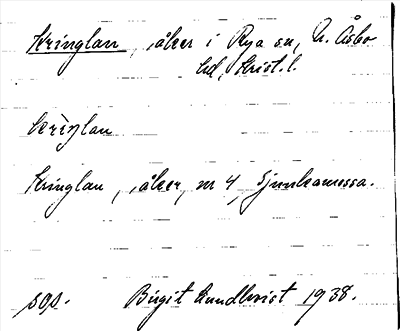 Kringlan, åker i Rya sn, N. Åsbo
hd, Krist. l.
kriŋlan
Kringlan, åker, nr 4, Ljunkamossa.
sos. Birgit Lundkvist 1938.